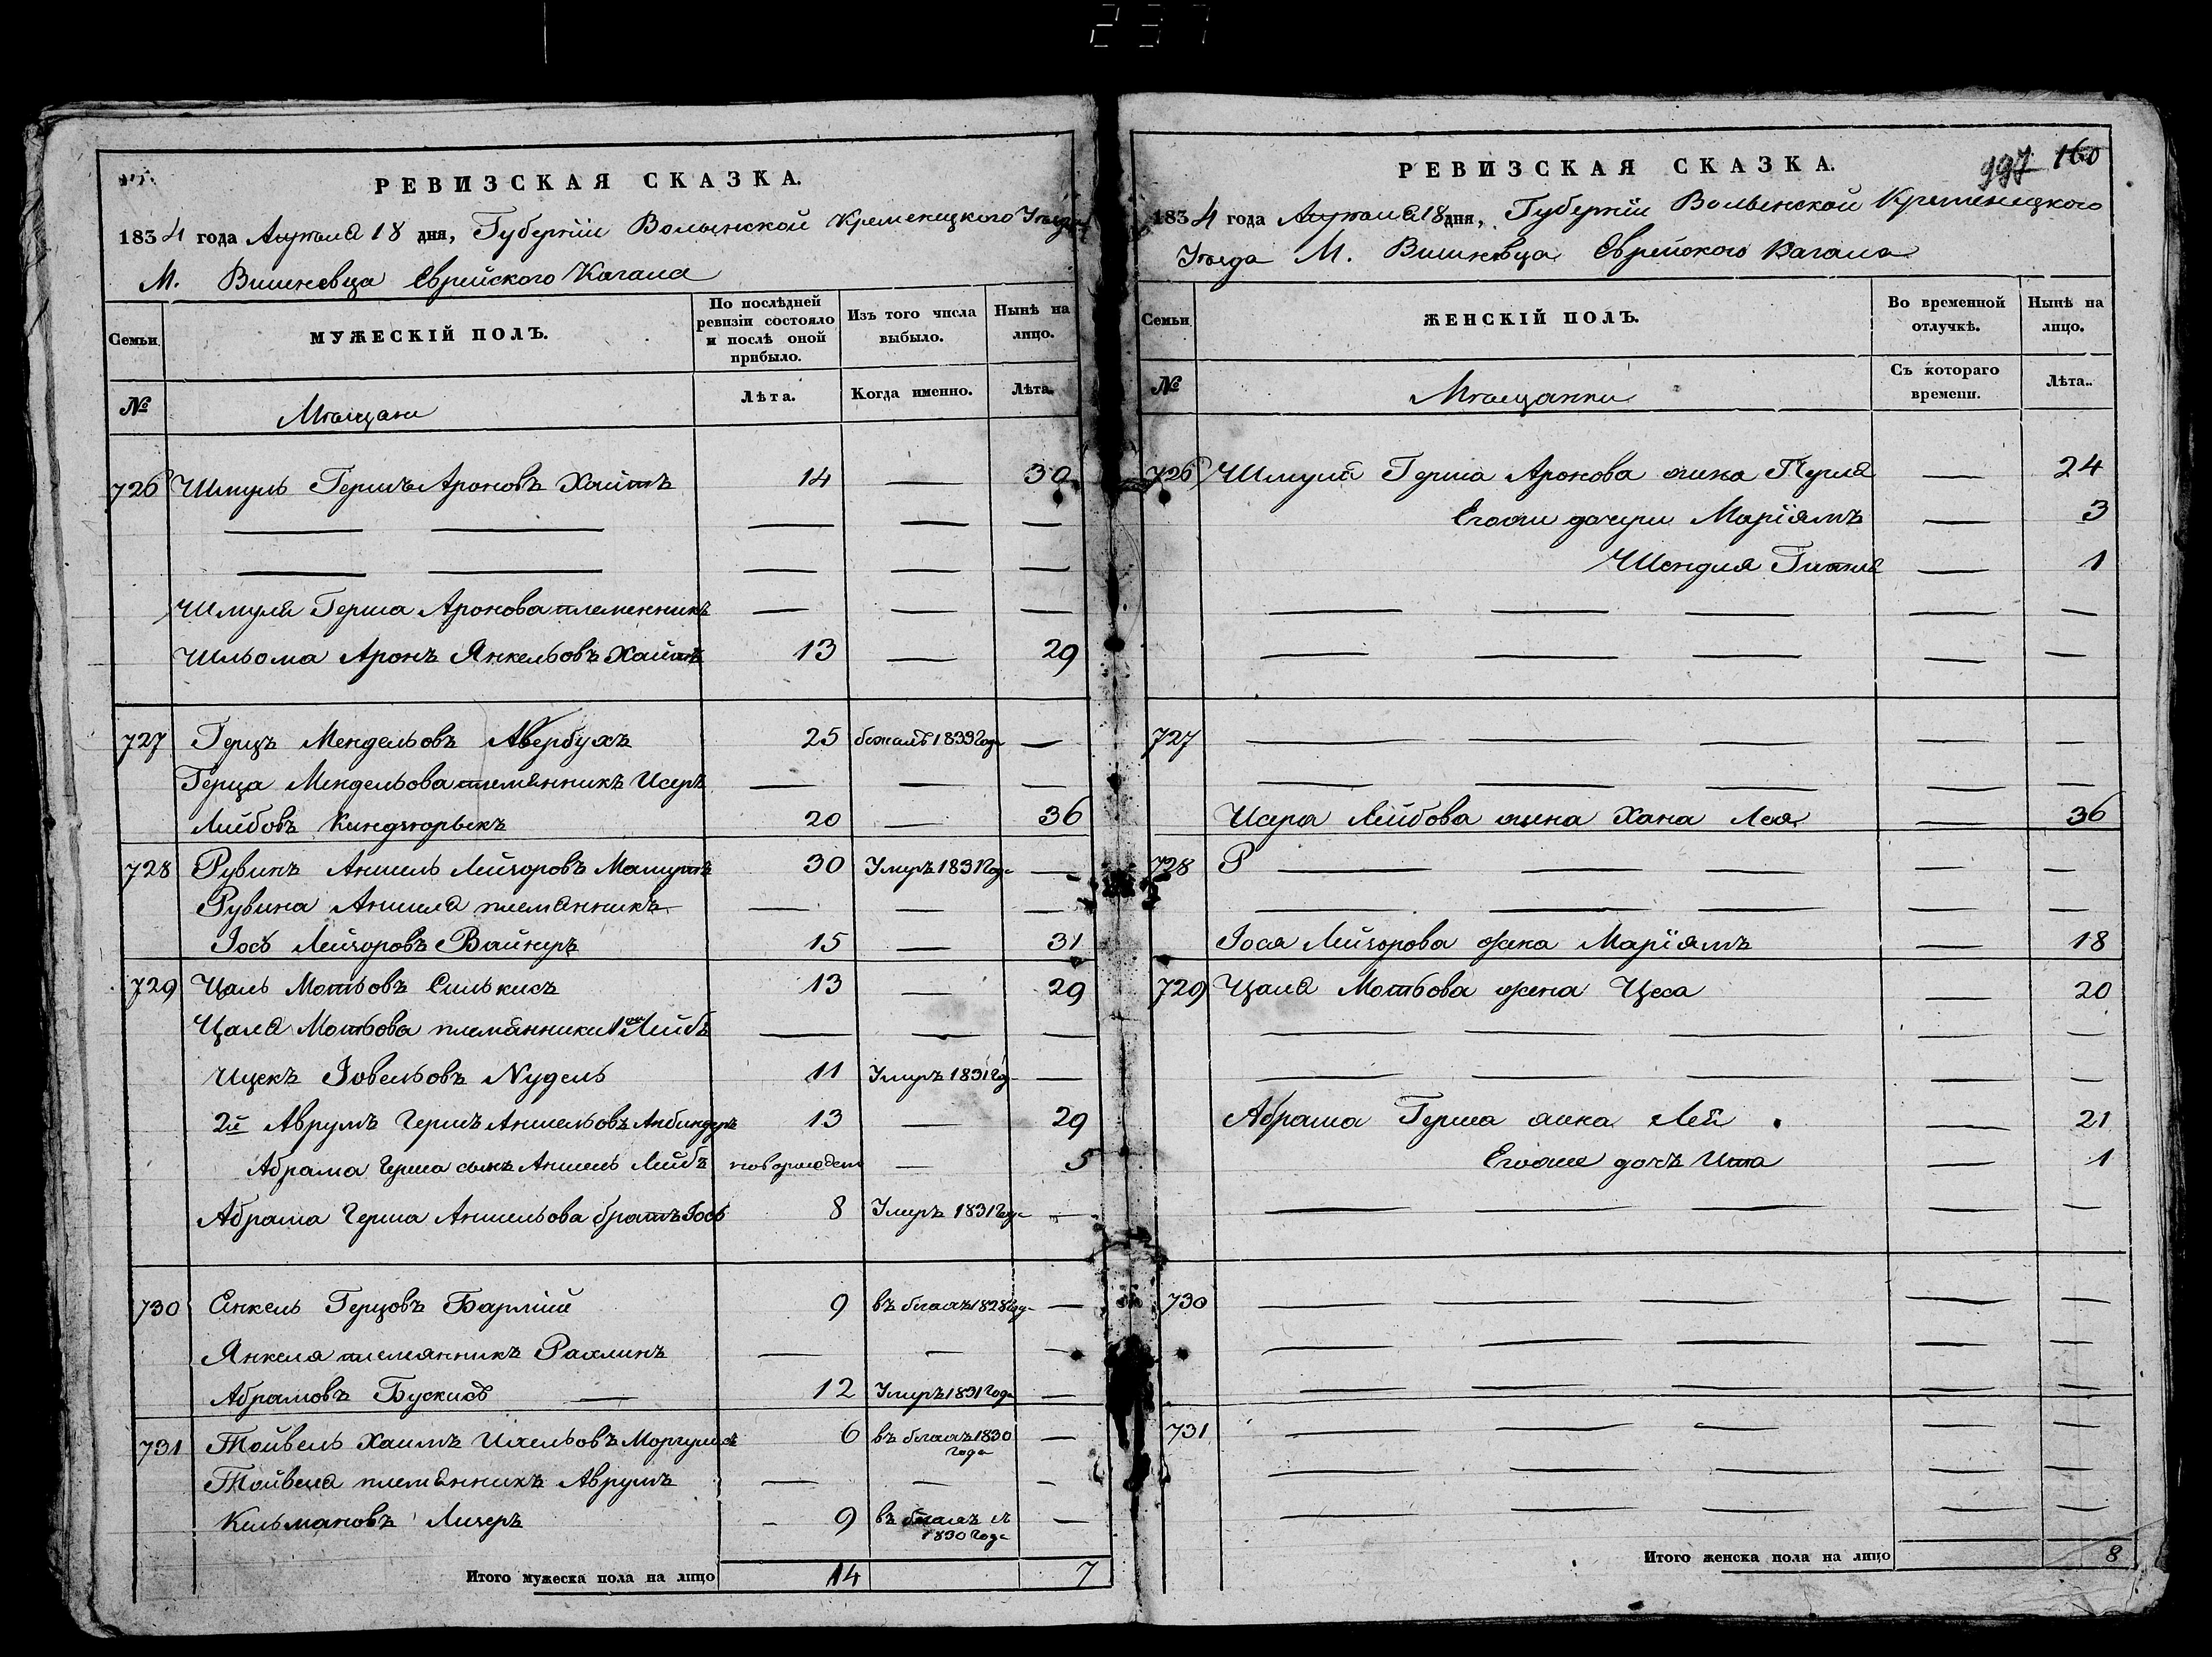 237
РЕВИЗСКАЯ СКАЗКА.
1834 года Апреля 18 дня, Губернии Волынской Кременецкого Уезда
М. Вишневца Еврейского Кагала
Семьи
МУЖЕСКІЙ ПОЛЪ.
По послѣдней ревизіи состояло и послѣ оной прибыло.
Изъ того числа выбыло.
Нынѣ на лицо.
№
Мѣщане
Лѣта.
Когда именно.
Лѣта.
726 Шмуль Гершъ Ароновъ Хаитъ 14 — 30
Шмуля Герша Аронова племенникъ
Шльома Аронъ Янкельовъ Хаитъ 13 — 29
727 Герцъ Мендельовъ Авербухъ 25 бежалъ 1833 Года —
Герца Мендельова племянникъ Исеръ
Лейбовъ 20 — 36
728 Рувинъ Аншель Лейзоровъ 30 Умеръ 1831 Года —
Рувина Аншеля племянникъ
Іось Лейзоровъ Вайнеръ 15 — 31
729 Цаль Мотьовъ Силькисъ 13 — 29
Цаля Мотьова племянники 1й Лейбъ
Ицекъ Іовельовъ Нудель 11 Умеръ 1831 Год —
2й Аврумъ Гершъ Аншельовъ 13 — 29
Абрама Герша сынъ Аншель Лейбъ новорожден — 5
Абрама Герша Аншельова братъ Іось 8 Умеръ 1831 Года —
730 Янкель Герцовъ 9 въ бегахъ 1828 Год —
Янкеля племянникъ Рахминъ
Абрамовъ Бускисъ — 12 Умеръ 1831 Года —
731 Тойвель Хаимъ Ихельовъ Моргулисъ 6 въ бегахъ 1830 года —
Тойвеля племянникъ Аврумъ
Кельмановъ 9 въ бегахъ съ 1830 Года —
Итого мужеска пола на лицо 14 7
РЕВИЗСКАЯ СКАЗКА.
997 160
1834 года Апреля 18 дня, Губернии Волынской Кременецкого
Уезда М. Вишневца Еврейского Кагала
Семьи
ЖЕНСКІЙ ПОЛЪ.
Во временной отлучкѣ.
Нынѣ на лицо.
№
Мѣщанки
Съ котораго времени.
Лѣта.
726 Шмуля Герша Аронова жена Перля — 24
Егоже дочери Маріямъ — 3
Шендля Гитля — 1
727
Исера Лейбова жена Хана Лея — 36
728 Р
Іося Лейзорова жена Маріямъ — 18
729 Цаля Мотьова жена Цеса — 20
Абрама Герша жена Лея — 21
Егоже дочь Ита — 1
730
731
Итого женска пола на лицо 8